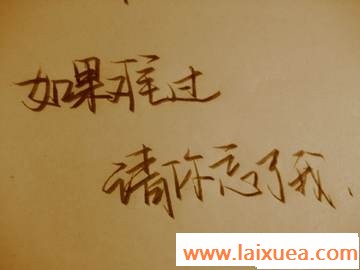 如果难过
请你忘了我、
www.laixuea.com